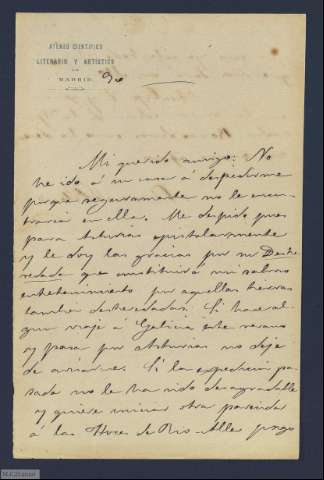 ATENEO CIENTÍFICO
LITERARIO Y ARTÍSTICO
DE
MADRID
Mi querido amigo: No
he ido á su casa á despedirme
porque seguramente no le encon
traria en ella. Me despido pues
para Asturias epistolarmente
y le doy las gracias por su Deshe
redada que constituirá mi sabroso
entretenimiento por aquellas tierras
tambien desheredadas. Si hace al-
gun viaje á Galicia este verano
y pasa por Asturias no deje
de avisarme. Si la expedicion pa-
sada no le ha sido desagradable
y quiere iniciar otra parecida
á las Hoces de Rio-Aller pongo